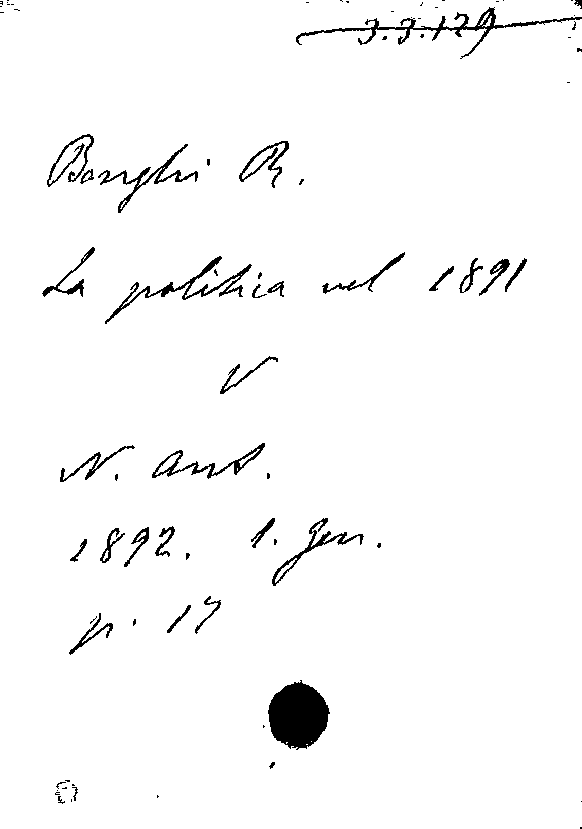 3.3.129
Bonghi R.
La politica nel 1891
V
N. Ant.
1892. 1. Gen.
p. 17